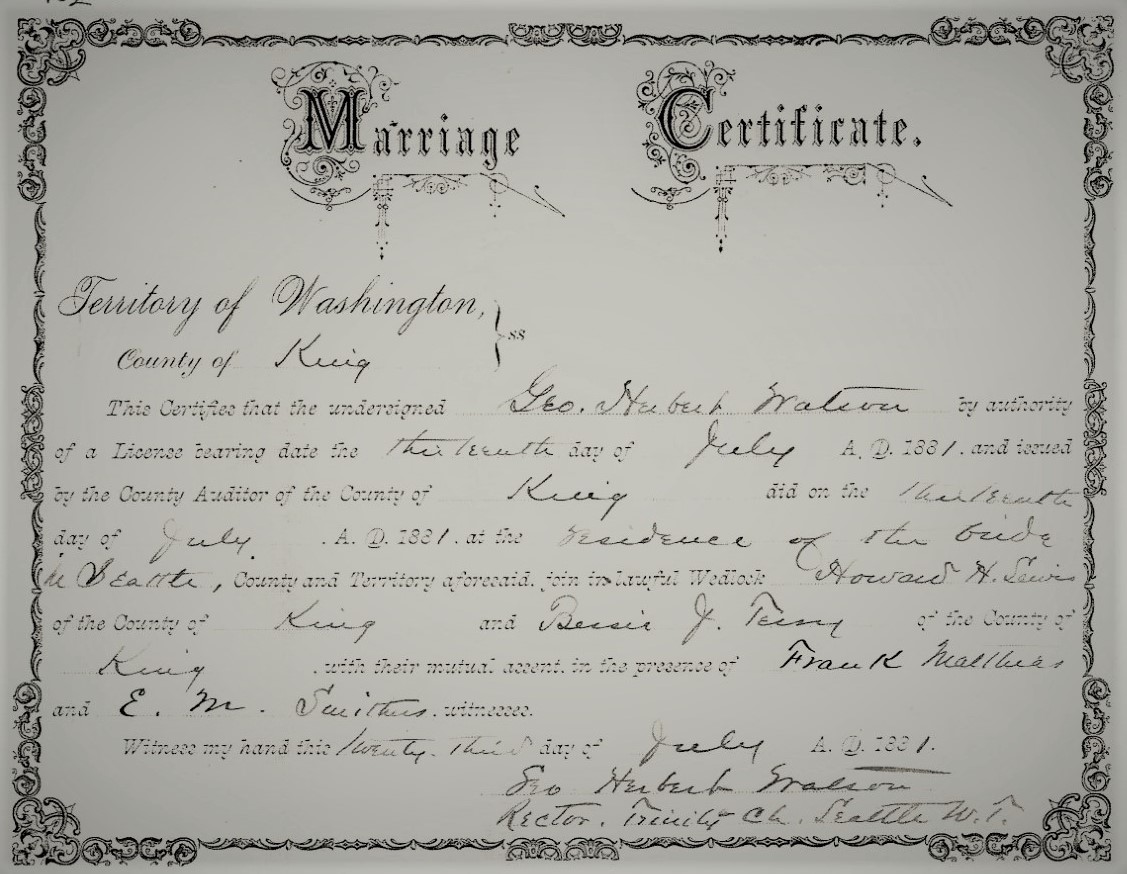 Marriage Certificate.
Territory of Washington,
County of King } ss
This Certifies that the undersigned Geo. Herbert Watson by authority
of a License bearing date the thirteenth day of July A. D. 1881. and issued
by the County Auditor of the County of King did on the thirteenth
day of July . A. D. 1881. at the residence of the bride
in Seattle, County and Territory aforesaid, join in lawful Wedlock Howard H. Lewis
of the County of King and Bessie J. Terry of the County of
King , with their mutual assent, in the presence of Frank Matthias
and E. M. Smithers, witnesses.
Witness my hand this twenty-third day of July A. D. 1881.
Geo Herbert Watson
Rector. Trinity Ch. Seattle W. T.